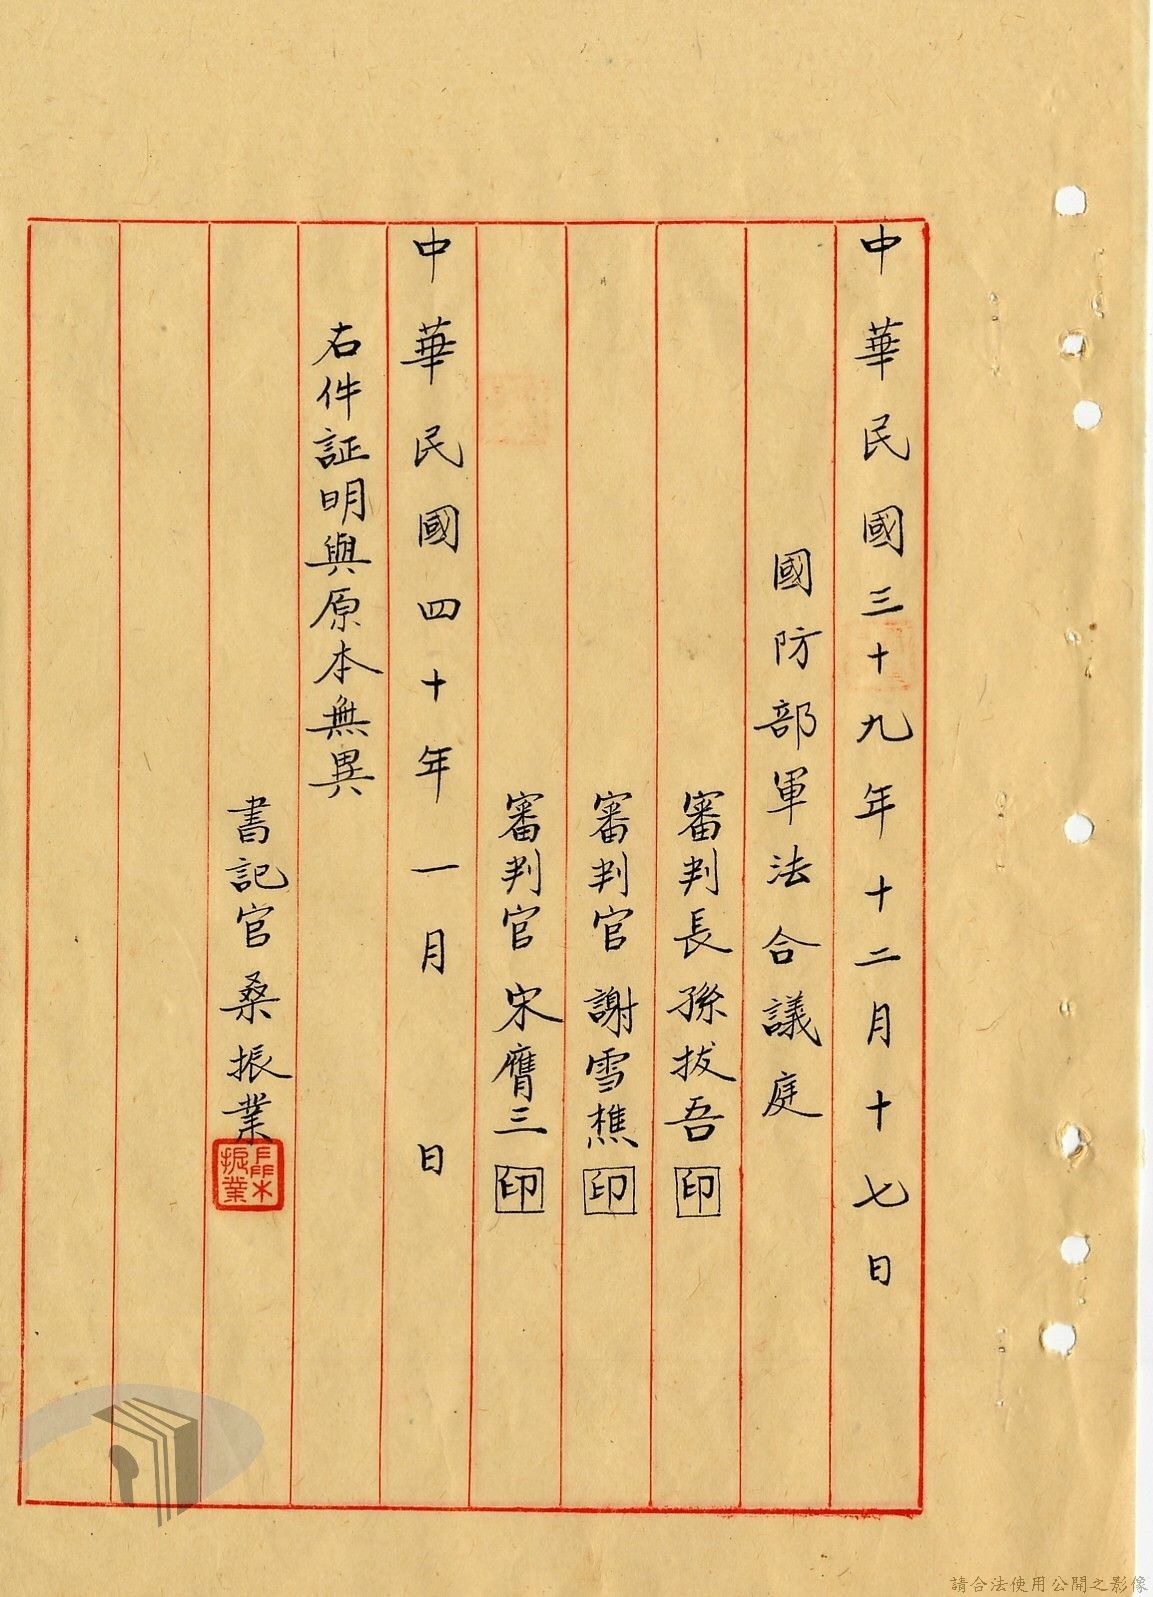 中華民國三十九年十二月十七日
國防部軍法合議庭
審判長孫拔吾印
審判官謝雪樵印
審判官宋膺三印
中華民國四十年一月　日
右件証明與原本無異
書記官桑振業
桑振業
請合法使用公開之影像